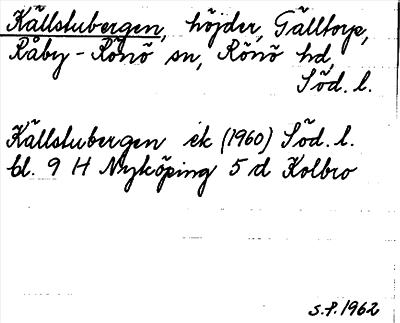 Källstubergen, höjder, Gälltorp,
Råby-Rönö sn, Rönö hd,
Söd. l.
Källstubergen ek (1960) Söd. l.
bl. 9 H Nyköping 5 d Kolbro
S.P. 1962